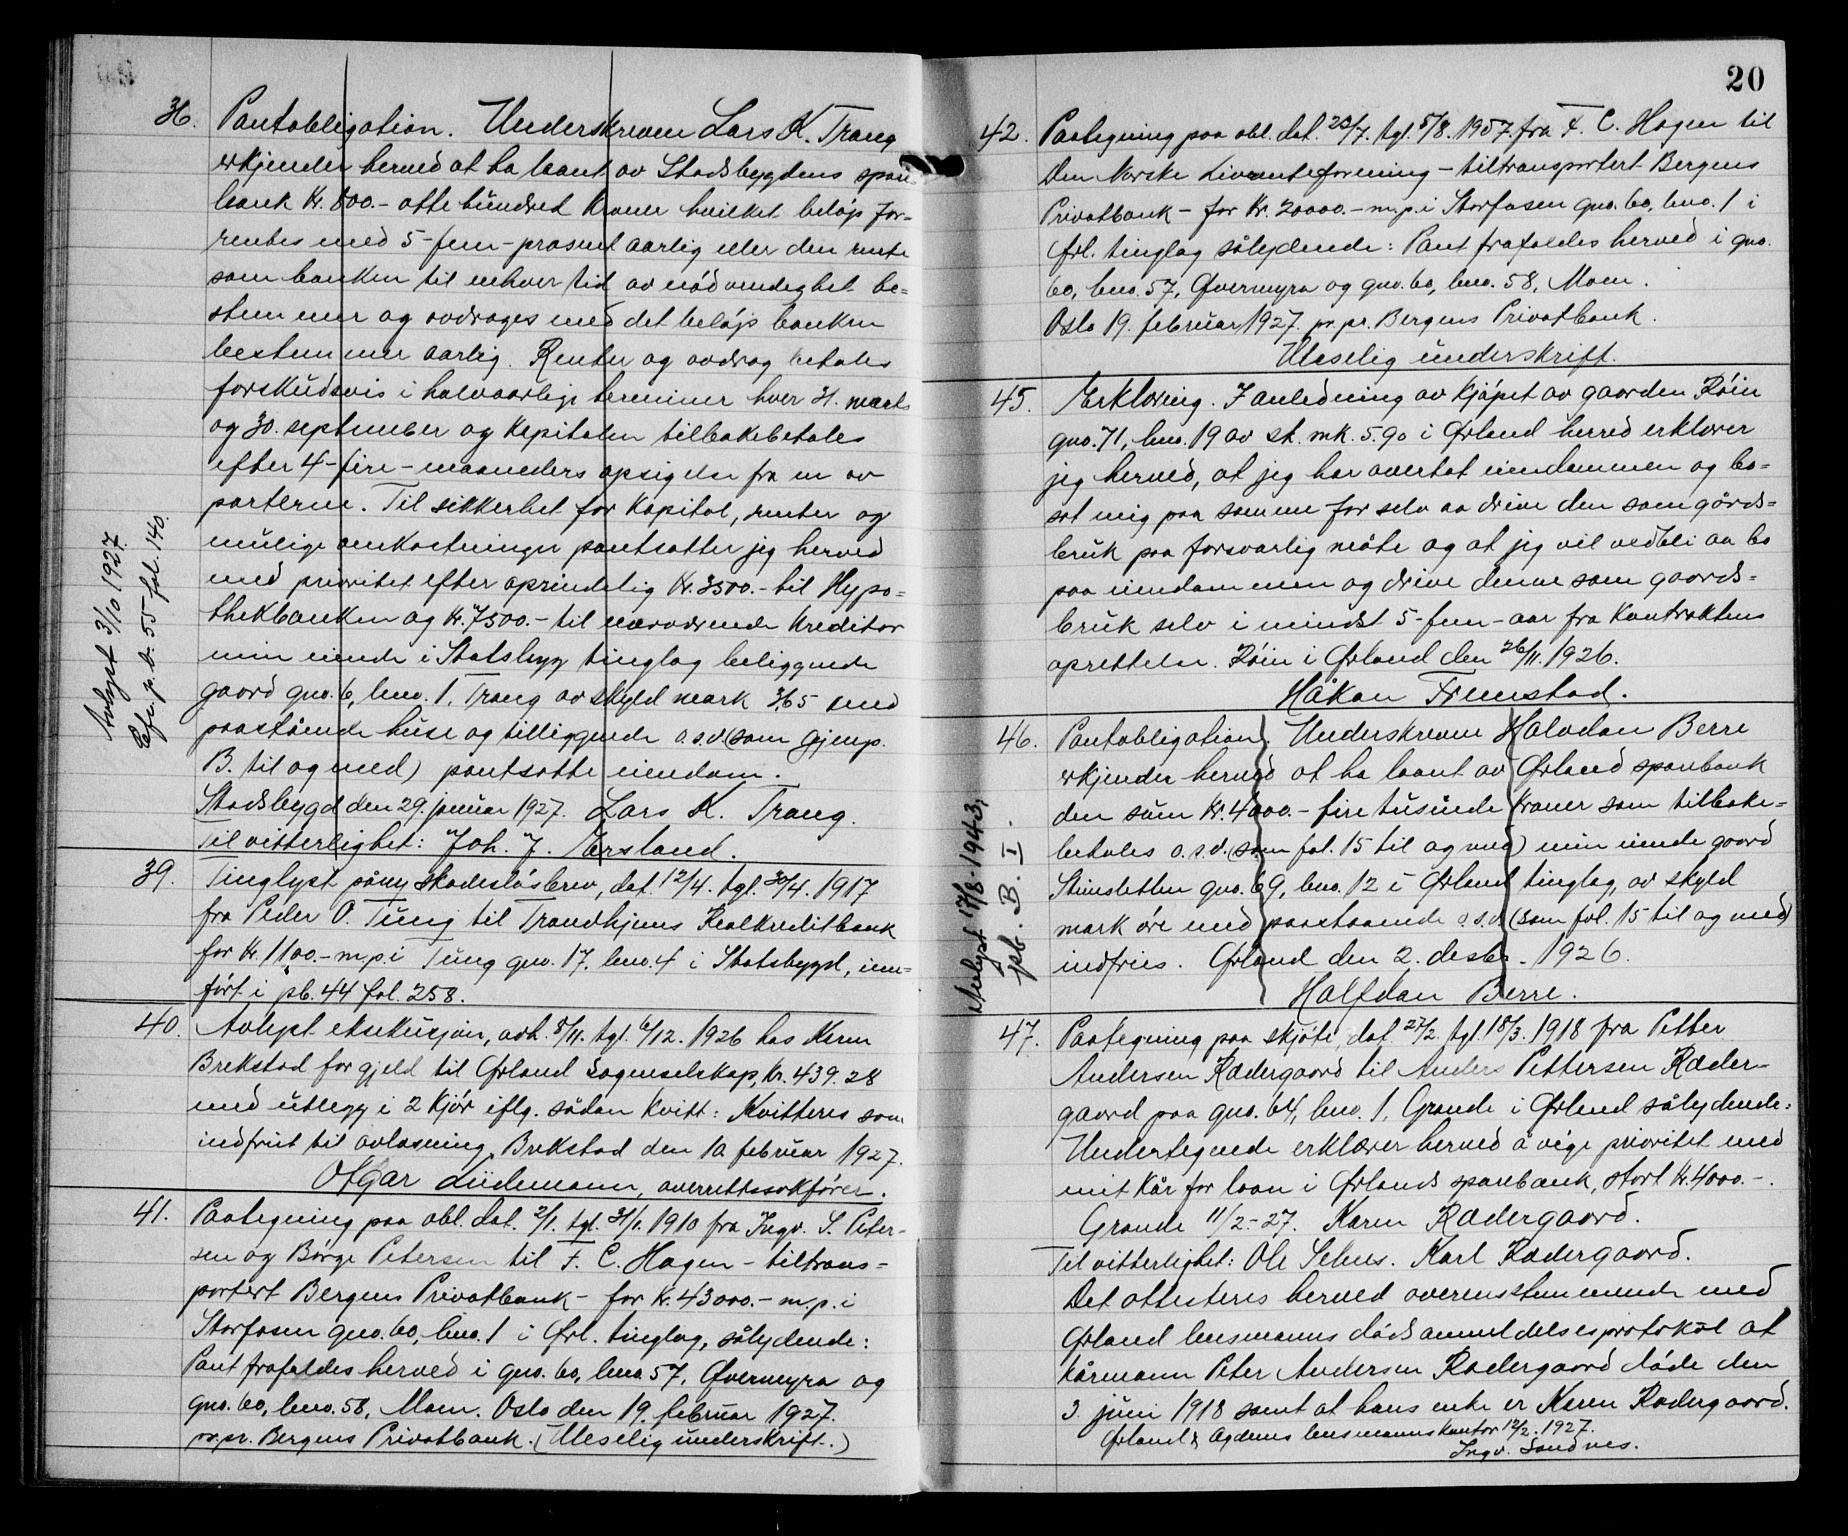 36. Pantobligation. Underskreven Lars K. Trang
erkjender herved at ha laant av Stadsbygdens spare-
bank kr. 800.- otte hundred kroner hvilket beløp for-
rentes med 5-fem-prosent aarlig eller den rente
som banken til enhver tid av nødvendighet be=
stemmer og avdrages med det beløp banken
bestemmer aarlig. Renter og avdrag betales
forskudsvis i halvaarlige terminer hver 31. marts
og 30. september og kapitalen tilbakebetales
efter 4-fire-maaneders opsigelse fra en av
parterne. Til sikkerhet for kapital, renter og
mulige omkostninger pantsætter jeg herved
med prioritet efter oprindelig kr. 3500.- til Hypo=
thekbanken og kr. 7500.- til nærværende kreditor
min eiende i Statsbygd tinglag beliggende
gaard gno. 6, bno. 1. Trang av skyld mark 3,65 med
paastående huse og tilliggende o.s.v. (som gjenp.
B. til og med) pantsatte eiendom.
Stadsbygd den 29. januar 1927. Lars K. Trang.
Til vitterlighet: Joh. J. Aarsland.
Avlyst 3/10 1927.
Efr. p.b. 55 fol. 140.
39. Tinglyst påny skadesløsbrev, dat. 12/4. tgl. 30/4. 1917
fra Peder O. Tung til Trondhjems Realkreditbank
for kr. 1100.- m.p.i Tung gno. 17, bno. 4 i Statsbygd, inn=
ført i pb. 44 fol. 258.
40. Avlyst eksekusjon, avh. 8/11. tgl. 6/12. 1926 hos Karen
Brekstad for gjeld til Ørland Sagenselskap, kr. 439.28
med utlegg i 2 kjør iflg. sådan kvitt: Kvitteres som
indfriet til avlæsning. Brekstad den 10 februar 1927.
Otgar Lüdemann, overrettssakfører.
41. Paategning paa obl. dat. 2/1. tgl. 31/1. 1910 fra Ingv. S. Peter-
sen og Børge Petersen til F. C. Hagen - tiltrans=
portert Bergens Privatbank - for kr. 43000.- m.p.i
Storfosen gno. 60, bno. 1 i Ørl. tinglag, sålydende:
Pant frafaldes herved i gno. 60, bno. 57, Øvermyra og
gno. 60, bno. 58, Moen. Oslo den 19. februar 1927.
pr.pr. Bergens Privatbank. (Uleselig underskrift.)
20
42. Paategning paa obl. dat. 23/7. tgl. 5/8. 1907 fra F. C. Hagen til
Den Norske Livrenteforening - tiltransportert Bergens
Privatbank - for kr. 20000.- m.p.i Storfosen gno. 60, bno. 1 i
Ørl. tinglag sålydende: Pant frafaldes herved i gno.
60, bno. 57, Øvermyra og gno. 60, bno. 58, Moen.
Oslo 19. februar 1927. pr.pr. Bergens Privatbank.
Uleselig underskrift.
45. Erklæring. I anledning av kjøpet av gaarden Røin
gno. 71, bno. 19 av sk. mk. 5.90 i Ørland herred erklærer
jeg herved, at jeg har overtat eiendommen og bo=
sat mig paa samme for selv aa drive den som gårds=
bruk paa forsvarlig måte og at jeg vil vedbli aa bo
paa eiendommen og drive denne som gaards=
bruk selv i mindst 5-fem-aar fra kontraktens
oprettelse. Røin i Ørland den 26/11. 1926.
Håkon Fremstad.
46. Pantobligation. Underskreven Halvdan Berre
erkjender herved at ha laant av Ørland sparebank
den sum kr. 4000.- fire tusinde kroner som tilbake=
betales o.s.v. (som fol. 15 til og med) min eiende gaard
Steinsletten gno. 69, bno. 12 i Ørland tinglag, av skyld
mark øre med paastaaende o.s.v. (som fol. 15 til og med)
indfries. Ørland den 2. desbr. 1926.
Halfdan Berre.
Avlyst 17/8. 1943,
pb. B. I.
47. Paategning paa skjøte, dat. 27/2. tgl. 18/3. 1918 fra Petter
Andersen Rædergaard til Anders Pettersen Ræder-
gaard paa gno. 64, bno. 1, Grande i Ørland sålydende:
Undertegnede erklærer herved å vige prioritet med
mit kår for laan i Ørlands sparebank, stort kr. 4000.-.
Grande 11/2.-27. Karen Rædergaard.
Til vitterlighet: Ole Selnes. Karl Rædergaard.
Det attesteres herved overensstemmende med
Ørland lensmanns dødsanmeldelsesprotokol at
kårmann Peter Andersen Rædergaard døde den
3 juni 1918 samt at hans enke er Karen Rædergaard.
Ørland & Agdenes lensmannskontor 12/2. 1927.
Ingv. Sandnes.